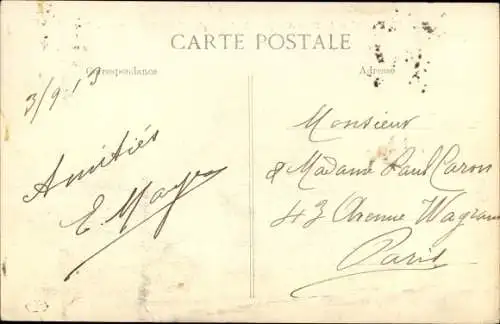 CARTE POSTALE
Correspondance
Adresse
3/9-13
Amitiés
E. May
Monsieur
& Madame Paul Caron
43 Avenue Wagram
Paris